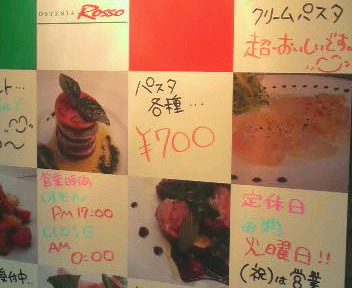 OSTERIA Rosso
クリームパスタ
超おいしいです。
パスタ
各種…
¥700
営業時間
OPEN
PM 17:00
CLOSE
AM
0:00
定休日
毎週
火曜日!!
(祝)は営業
受付中